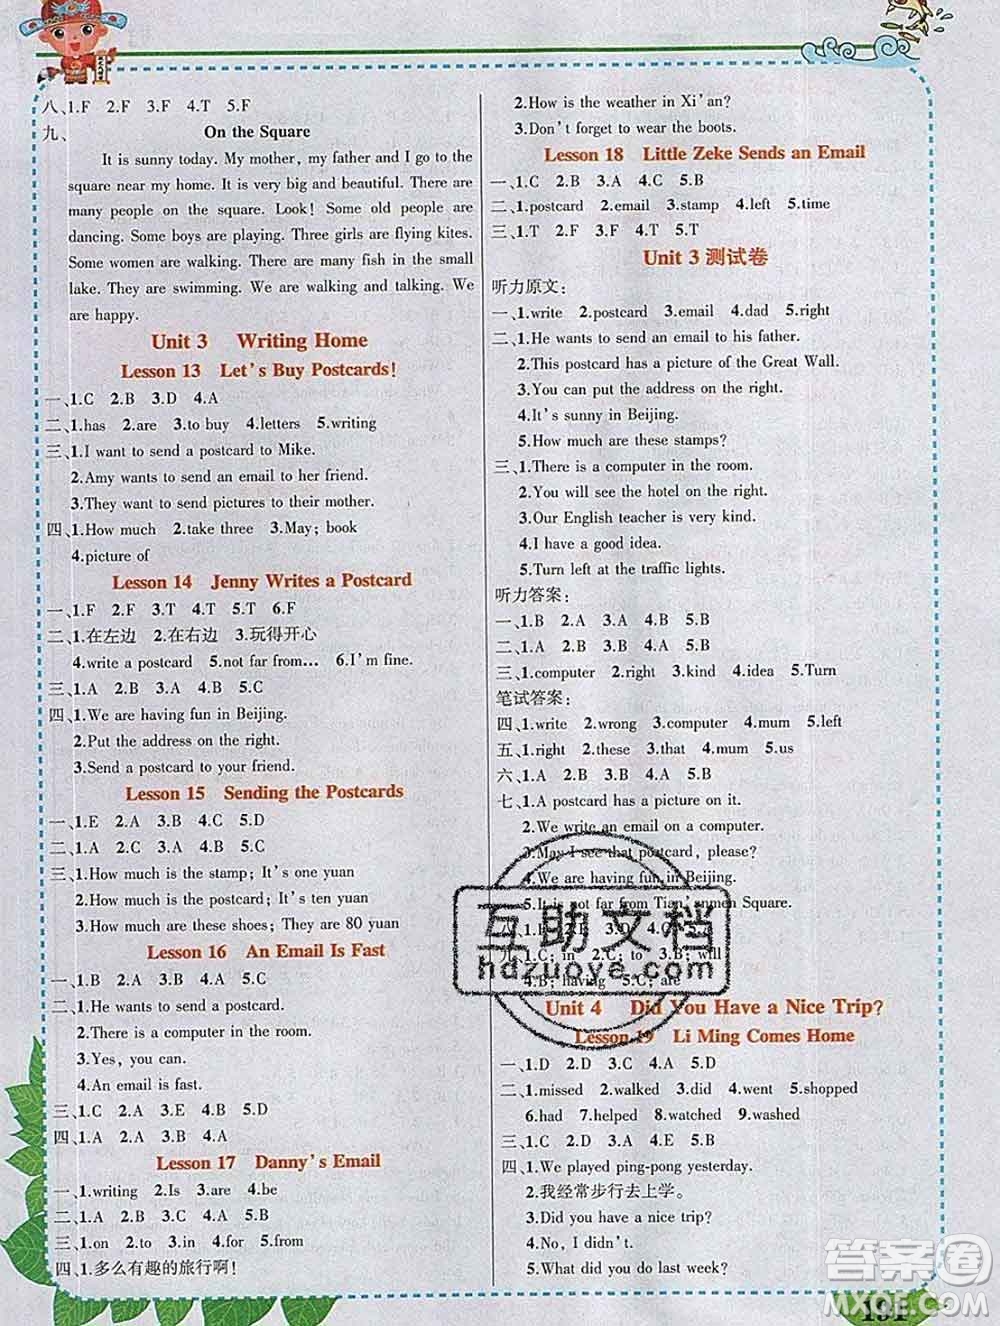 八、1.F 2.F 3.F 4.T 5.F
九、 On the Square
It is sunny today. My mother, my father and I go to the
square near my home. It is very big and beautiful. There are
many people on the square. Look! Some old people are
dancing. Some boys are playing. Three girls are flying kites.
Some women are walking. There are many fish in the small
lake. They are swimming. We are walking and talking. We
are happy.
Unit 3 Writing Home
Lesson 13 Let's Buy Postcards!
一、1.C 2.B 3.D 4.A
二、1.has 2.are 3.to buy 4.letters 5.writing
三、1.I want to send a postcard to Mike.
2.Amy wants to send an email to her friend.
3.They want to send pictures to their mother.
四、1.How much 2.take three 3.May; book
4.picture of
Lesson 14 Jenny Writes a Postcard
一、1.F 2.F 3.T 4.T 5.T 6.F
二、1.在左边 2.在右边 3.玩得开心
4.write a postcard 5.not far from... 6.I'm fine.
三、1.A 2.B 3.A 4.B 5.C
四、1.We are having fun in Beijing.
2.Put the address on the right.
3.Send a postcard to your friend.
Lesson 15 Sending the Postcards
一、1.E 2.A 3.B 4.C 5.D
二、1.A 2.A 3.B 4.A 5.B
三、1.How much is the stamp; It's one yuan
2.How much is the postcard; It's ten yuan
3.How much are these shoes; They are 80 yuan
Lesson 16 An Email Is Fast
一、1.B 2.A 3.B 4.A 5.C
二、1.He wants to send a postcard.
2.There is a computer in the room.
3.Yes, you can.
4.An email is fast.
三、1.C 2.A 3.E 4.B 5.D
四、1.A 2.A 3.B 4.A
Lesson 17 Danny's Email
一、1.writing 2.Is 3.are 4.be
二、1.A 2.B 3.A 4.A 5.B
三、1.on 2.to 3.in 4.for 5.from
四、1.多么有趣的旅行啊!
2.How is the weather in Xi'an?
3.Don't forget to wear the boots.
Lesson 18 Little Zeke Sends an Email
一、1.C 2.B 3.A 4.C 5.B
二、1.postcard 2.email 3.stamp 4.left 5.time
三、1.T 2.F 3.T 4.F 5.T
Unit 3 测试卷
听力原文:
一、1.write 2.postcard 3.email 4.dad 5.right
二、1.He wants to send an email to his father.
2.This postcard has a picture of the Great Wall.
3.You can put the address on the right.
4.It's sunny in Beijing.
5.How much are these stamps?
三、1.There is a computer in the room.
2.You will see the hotel on the right.
3.Our English teacher is very kind.
4.I have a good idea.
5.Turn left at the traffic lights.
听力答案:
一、1.B 2.A 3.A 4.B 5.B
二、1.A 2.B 3.A 4.A 5.B
三、1.computer 2.right 3.kind 4.idea 5.Turn
笔试答案:
四、1.write 2.wrong 3.computer 4.mum 5.left
五、1.right 2.these 3.that 4.mum 5.us
六、1.A 2.B 3.B 4.A 5.B
七、1.A postcard has a picture on it.
2.We write an email on a computer.
3.May I see that postcard, please?
4.We are having fun in Beijing.
5.It is not far from Tian'anmen Square.
九、1.C; in 2.C; to 3.B; will
4.B; having 5.C; are
Unit 4 Did You Have a Nice Trip?
Lesson 19 Li Ming Comes Home
一、1.D 2.D 3.C 4.A 5.D
二、1.missed 2.walked 3.did 4.went 5.shopped
6.had 7.helped 8.watched 9.washed
三、1.C 2.D 3.A 4.E 5.B
四、1.We played ping-pong yesterday.
2.我经常步行去上学。
3.Did you have a nice trip?
4.No, I didn't.
5.What did you do last week?
互助文档
hdzuoye.com
答案圈
MXQE.COM
191